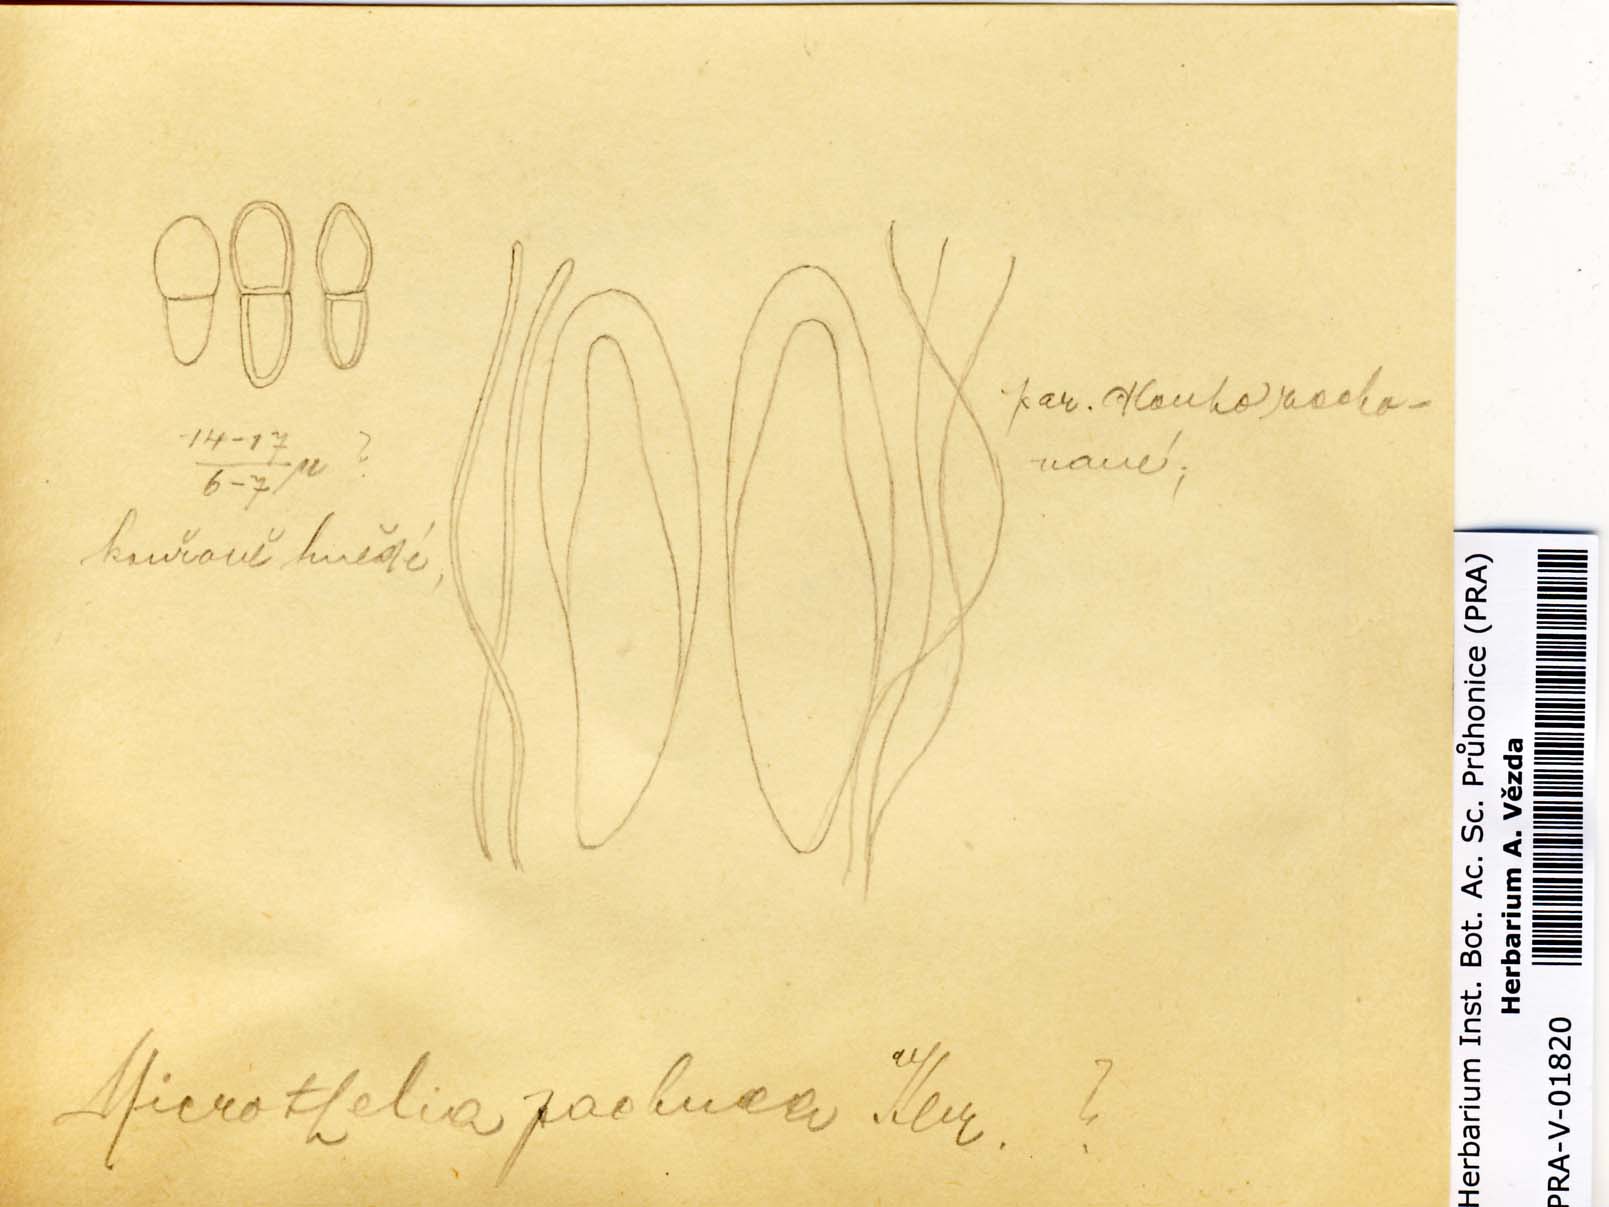 14-17
6-7 μ ?
kouřově hnědé,
par. dlouho zacho-
vané;
Microthelia pachnea Kbr. ?
Herbarium Inst. Bot. Ac. Sc. Průhonice (PRA)
Herbarium A. Vězda
PRA-V-01820